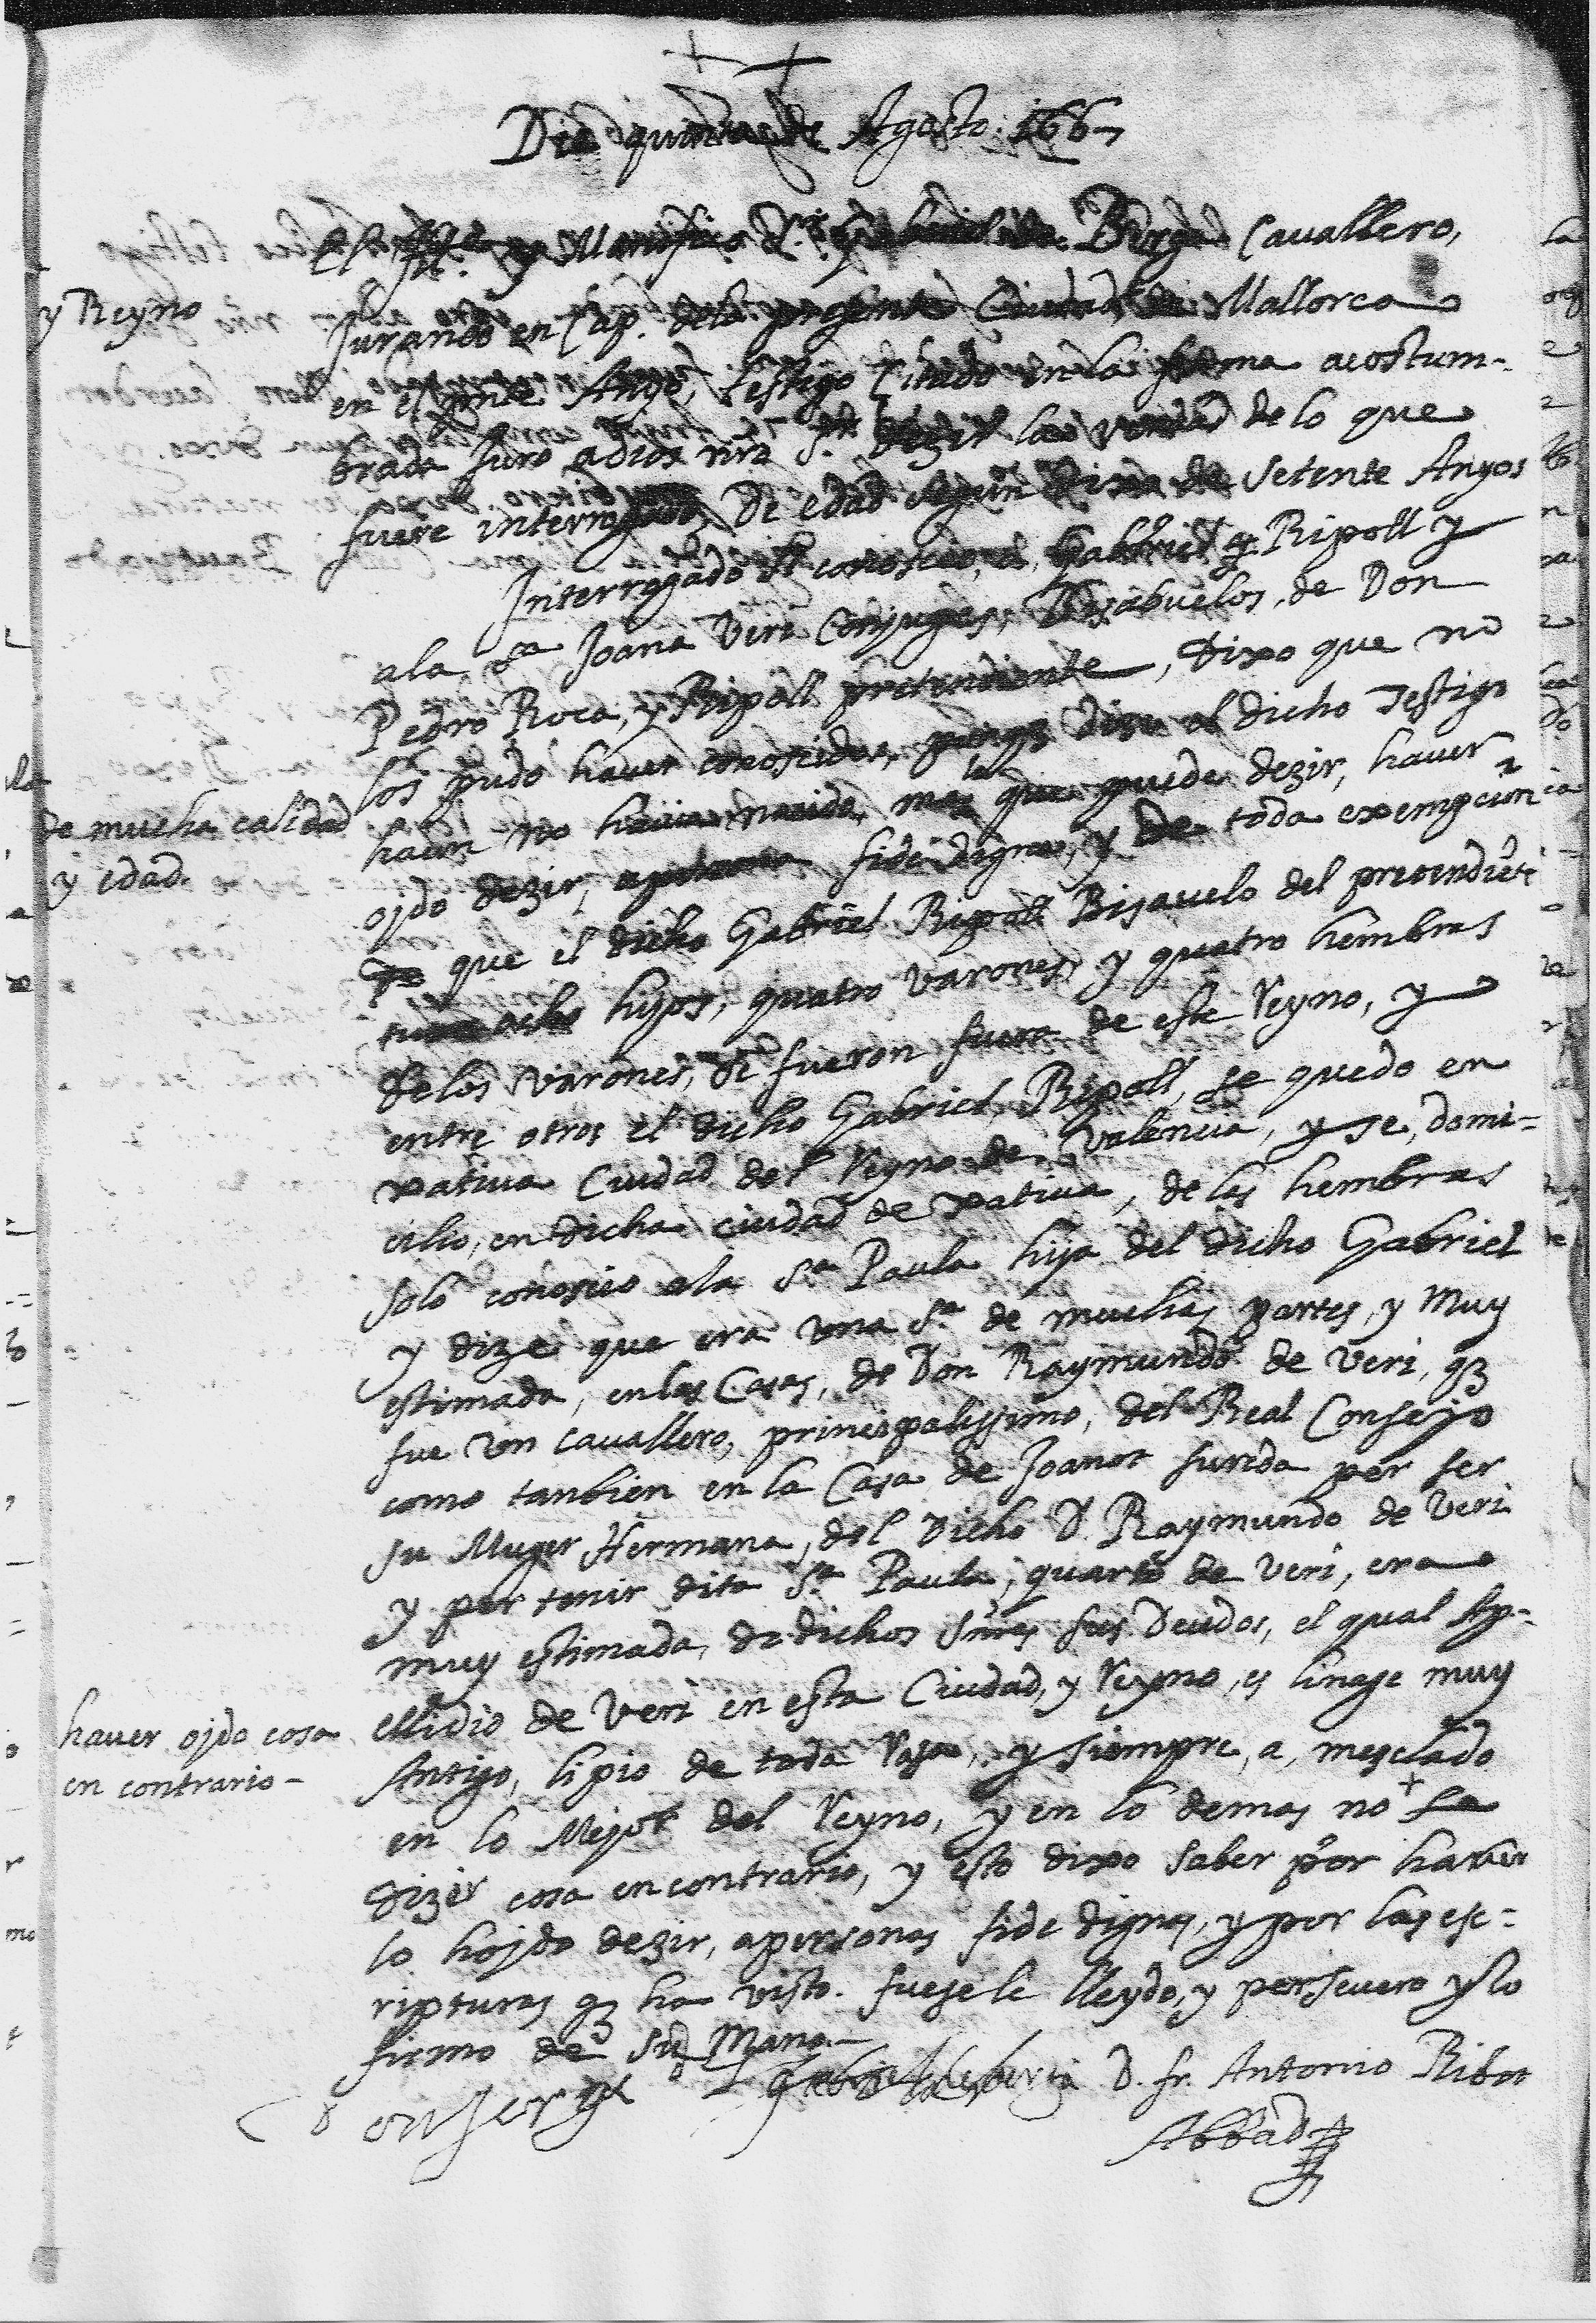 Dia quinta de Agosto. 1667
El Ille. y Manifico Sr. Gabriel de Berga Cavallero,
y Reyno
Jurando en Cap. dela presente Ciudad de Mallorca
en el pnte Anyo, testigo Citado en la forma acostum-
brada Juro adios nro Sr. dezir la verdad de lo que
fuere interrogado, De edad segun dixo de setente Anyos
Interrogado si conoscio, a Gabriel Ripoll y
ala Sra Joana Veri Conjuges, Bisabuelos, de Don
Pedro Roca, y Ripoll pretendiente, Dixo que no
los pudo haver conoscidos, porqe dize el dicho Testigo
haun no havia nacido, mas lo que puede dezir, haver
de mucha calidad
y edad
ojdo dezir, a personas fide dignas, y de toda exempcion
que el dicho Gabriel Ripoll Bisavuelo del pretendiete
tuvo ocho hijos, quatro varones, y quatro hembras
de los varones, se fueron fuera de este Reyno, y
entre otros el dicho Gabriel Ripoll, se quedo en
xativa Ciudad del Reyno de Valencia, y se, domi-
cilio, en dicha ciudad de xativa, de las hembras
solo conoscio ala Sra Paula hija del dicho Gabriel
y dize que era una Sra de muchas partes, y Muy
estimada, en las Casas, de Don Raymundo de Veri, q
fue Un cavallero, principalissimo, del Real Consejo
como tanbien en la Casa de Joanot sureda per ser
su Muger Hermana, del Dicho D. Raymundo de Veri
y per tenir dita Sra Paula, quarto de Veri, era
muy estimada, de dichos Sres sus Deudos, el qual Ap-
ellidio de Veri en esta Ciudad, y Reyno, es linaje muy
haver ojdo cosa
en contrario -
Antigo, lipio de toda Rasa, y siempre, a, mesclado
en lo Mejor del Reyno, y en lo demas no + sa
dizir cosa en contrario, y esto dixo saber por haver
lo hojdo dezir, apersonas fide dignas, y por las esc=
ripturas q ha visto. fuesele lleydo, y persevero y lo
firmo de su Mano.-
Gabriel de berga D. fr. Antonio Ribot
Abbad